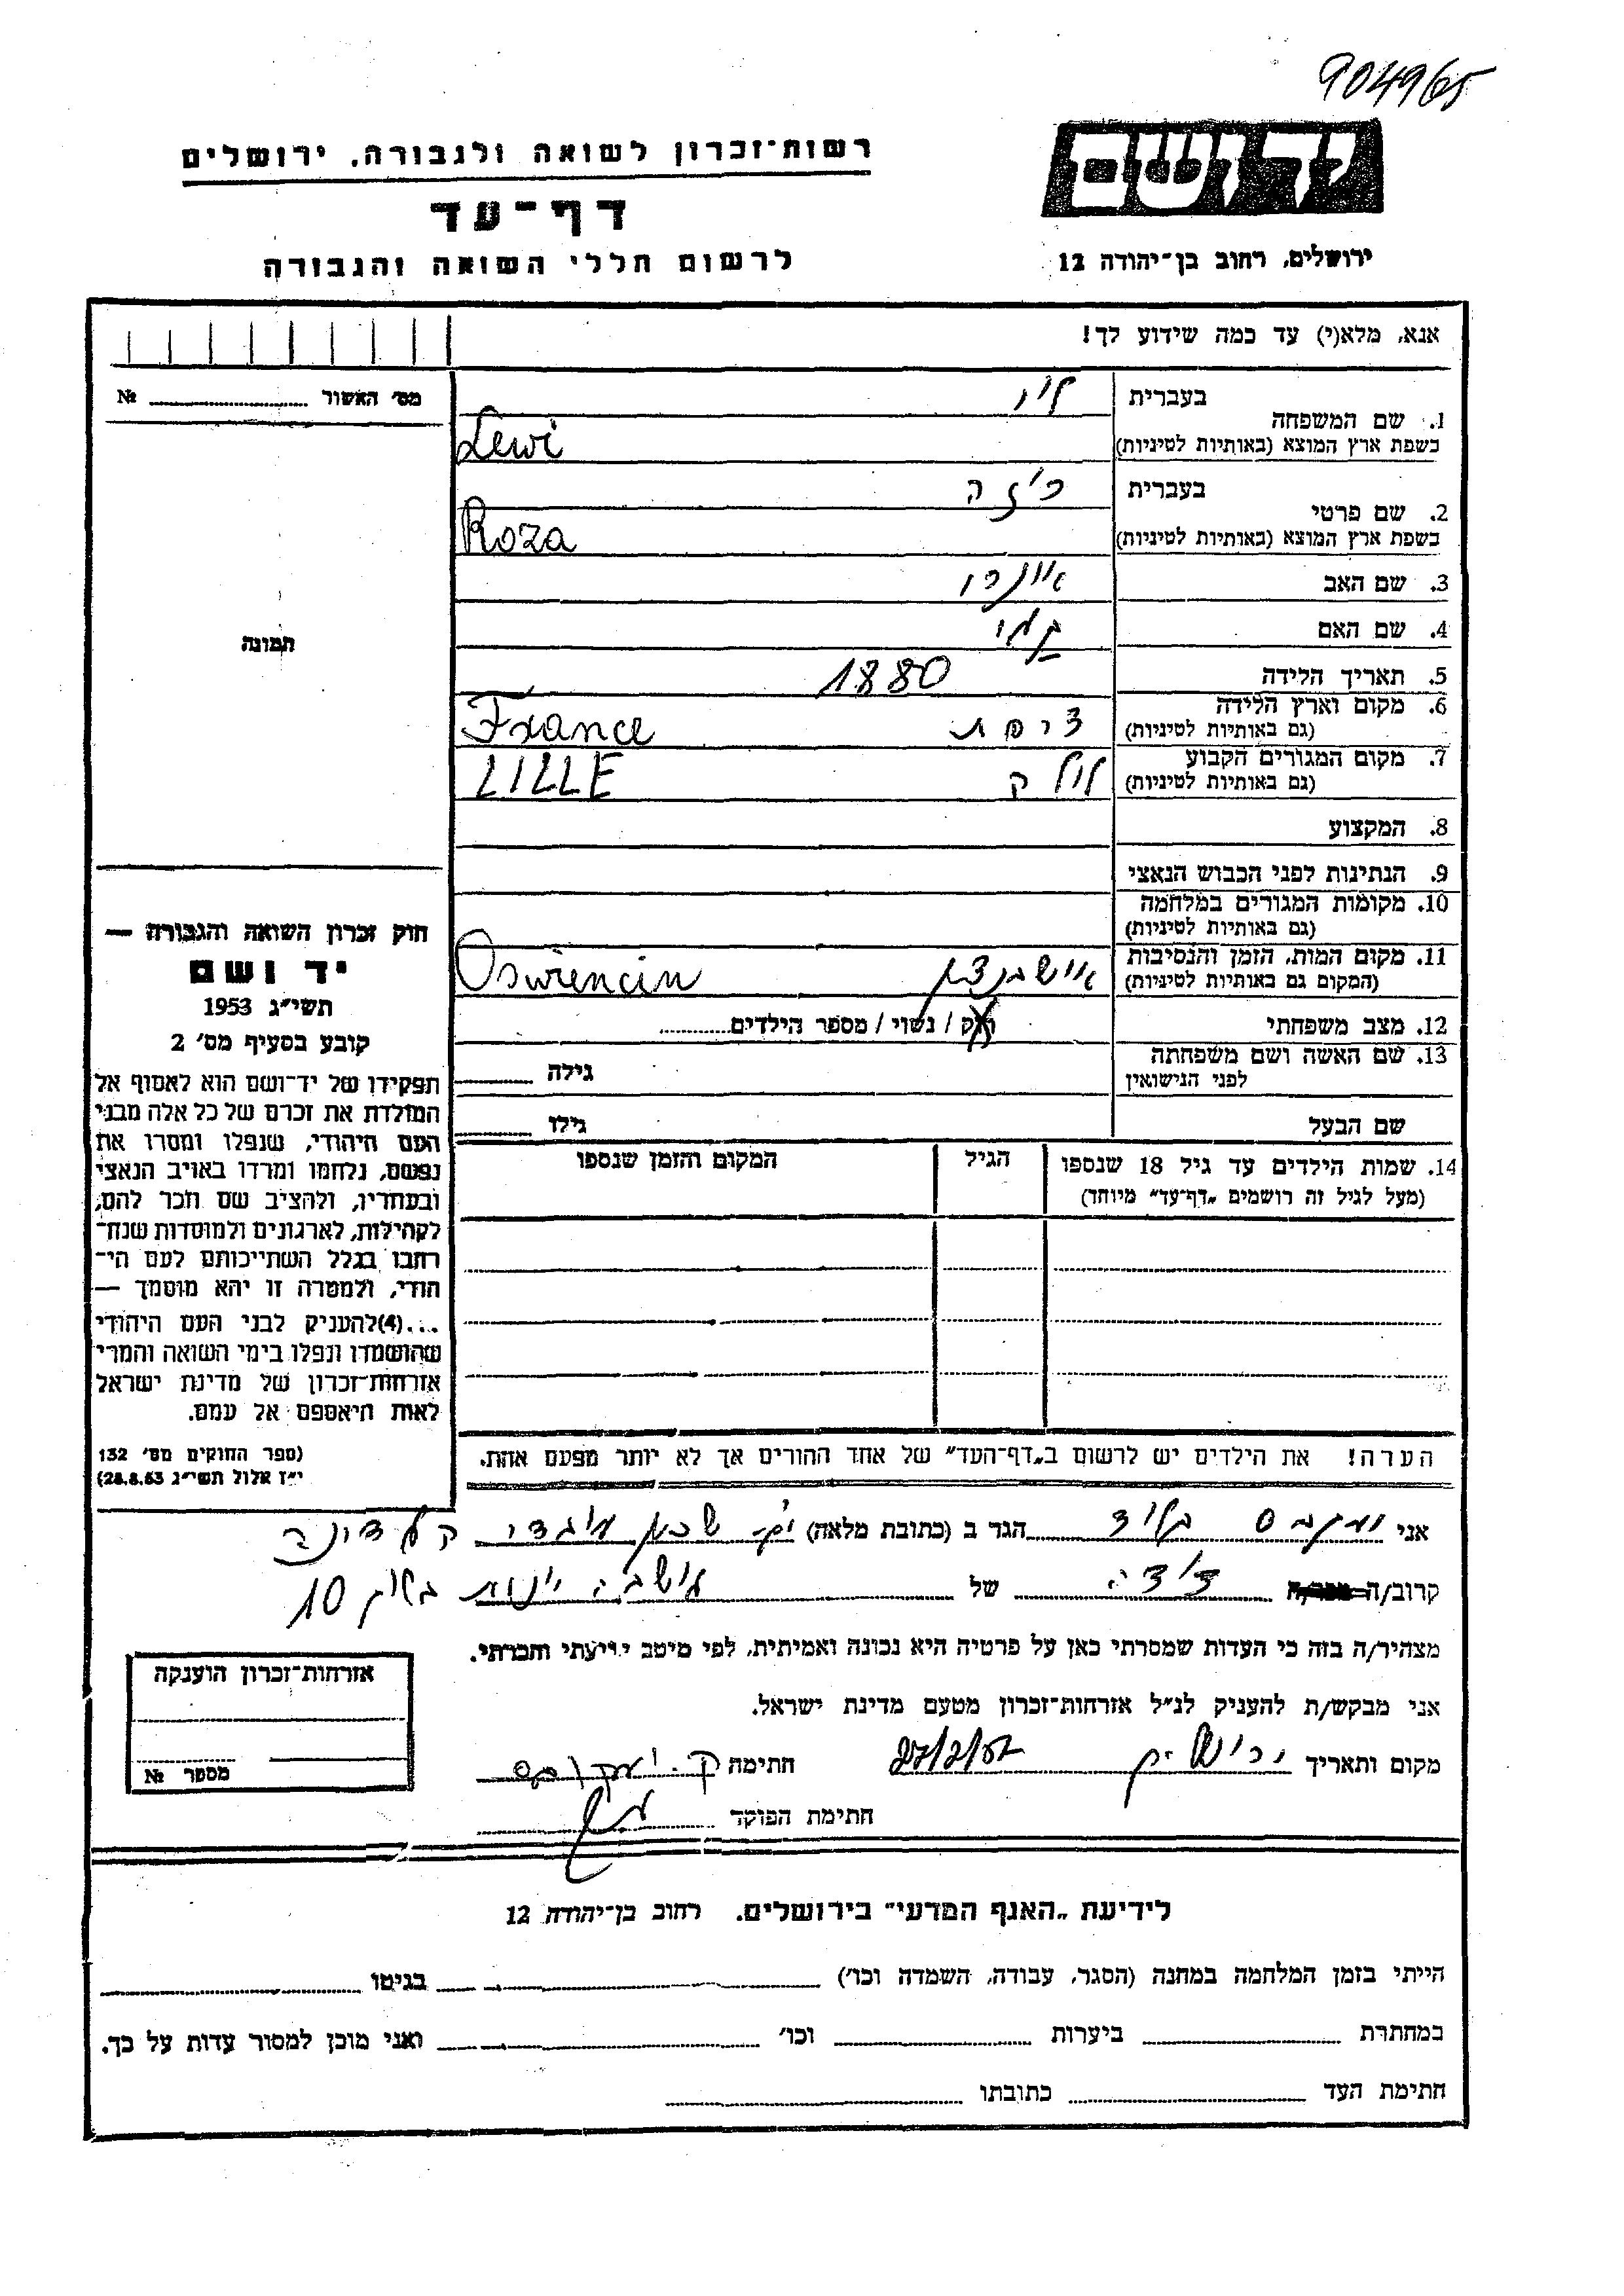 904965
רשות־זכרון לשואה ולגבורה, ירושלים
דף־עד
לרשום חללי השואה והגבורה
יד ושם
ירושלים, רחוב בן־יהודה 12
אנא, מלא(י) עד כמה שידוע לך!
מס׳ האשור № 
1. שם המשפחה
בעברית לוי
בשפת ארץ המוצא (באותיות לטיניות) Lewi
2. שם פרטי
בעברית רוזה
בשפת ארץ המוצא (באותיות לטיניות) Roza
3. שם האב
4. שם האם
5. תאריך הלידה 1880
6. מקום וארץ הלידה צרפת France
(גם באותיות לטיניות)
7. מקום המגורים הקבוע LILLE
(גם באותיות לטיניות)
8. המקצוע
9. הנתינות לפני הכבוש הנאצי
10. מקומות המגורים במלחמה
(גם באותיות לטיניות)
11. מקום המות, הזמן והנסיבות Oswiencin
(המקום גם באותיות לטיניות)
12. מצב משפחתי רוק / נשוי / מספר הילדים
13. שם האשה ושם משפחתה
לפני הנישואין
גילה
שם הבעל גילו
14. שמות הילדים עד גיל 18 שנספו הגיל המקום והזמן שנספו
(מעל לגיל זה רושמים „דף־עד״ מיוחד)
הערה! את הילדים יש לרשום ב„דף־העד״ של אחד ההורים אך לא יותר מפעם אחת.
תמונה
חוק זכרון השואה והגבורה —
יד ושם
תשי״ג 1953
קובע בסעיף מס׳ 2
תפקידו של יד־ושם הוא לאסוף אל
המולדת את זכרם של כל אלה מבני
העם היהודי, שנפלו ומסרו את
נפשם, נלחמו ומרדו באויב הנאצי
ובעוזריו, ולהציב שם וזכר להם,
לקהילות, לארגונים ולמוסדות שנח־
רבו בגלל השתייכותם לעם הי־
הודי, ולמטרה זו יהא מוסמך —
...(4) להעניק לבני העם היהודי
שהושמדו ונפלו בימי השואה והמרי
אזרחות־זכרון של מדינת ישראל
לאות היאספם אל עמם.
(ספר החוקים מס׳ 132
י״ז אלול תשי״ג 28.8.53)
אני הגר ב (כתובת מלאה)
קרוב/ה דודה של 10
מצהיר/ה בזה כי העדות שמסרתי כאן על פרטיה היא נכונה ואמיתית, לפי מיטב ידיעתי והכרתי.
אני מבקש/ת להעניק לנ״ל אזרחות־זכרון מטעם מדינת ישראל.
מקום ותאריך חתימה
חתימת הפוקד
אזרחות־זכרון הוענקה
מספר №
לידיעת „האגף המדעי״ בירושלים. רחוב בן־יהודה 12
הייתי בזמן המלחמה במחנה (הסגר, עבודה, השמדה וכו׳) בגיטו
במחתרת ביערות וכו׳ ואני מוכן למסור עדות על כך.
חתימת העד כתובתו